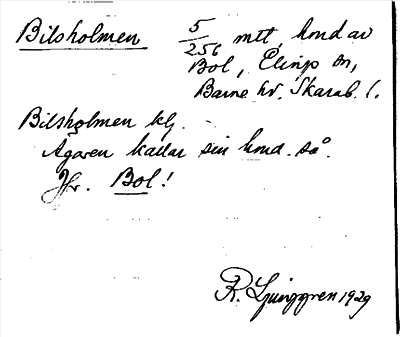 Bilsholmen 5/256 mtl, hmd av
Bol, Elings sn,
Barne hd. Skarab. l.
Bilsholmen klj.
Ägaren kallar sin hmd. så.
Jfr. Bol!
R. Ljunggren 1929